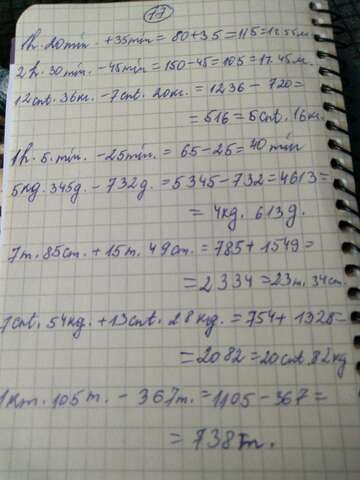 77
1h. 20min + 35min = 80+35=115=1h.55m.
2h. 30min. - 45min = 150-45=105=1h.45m.
12cnt. 36kg. - 7cnt. 20kg. = 1236 - 720=
= 516 = 5cnt. 16kg.
1h. 5. min. - 25min. = 65 - 25 = 40 min
5kg. 345g. - 732g. = 5345-732=4613=
= 4kg. 613g.
7m. 85cm. + 15m. 49cm. = 785 + 1549=
= 2334 = 23m. 34cm.
7cnt. 54kg. + 13cnt. 28kg. = 754+ 1328=
= 2082 = 20cnt 82kg
1km. 105m. - 367m. = 1105 - 367 =
= 738m.